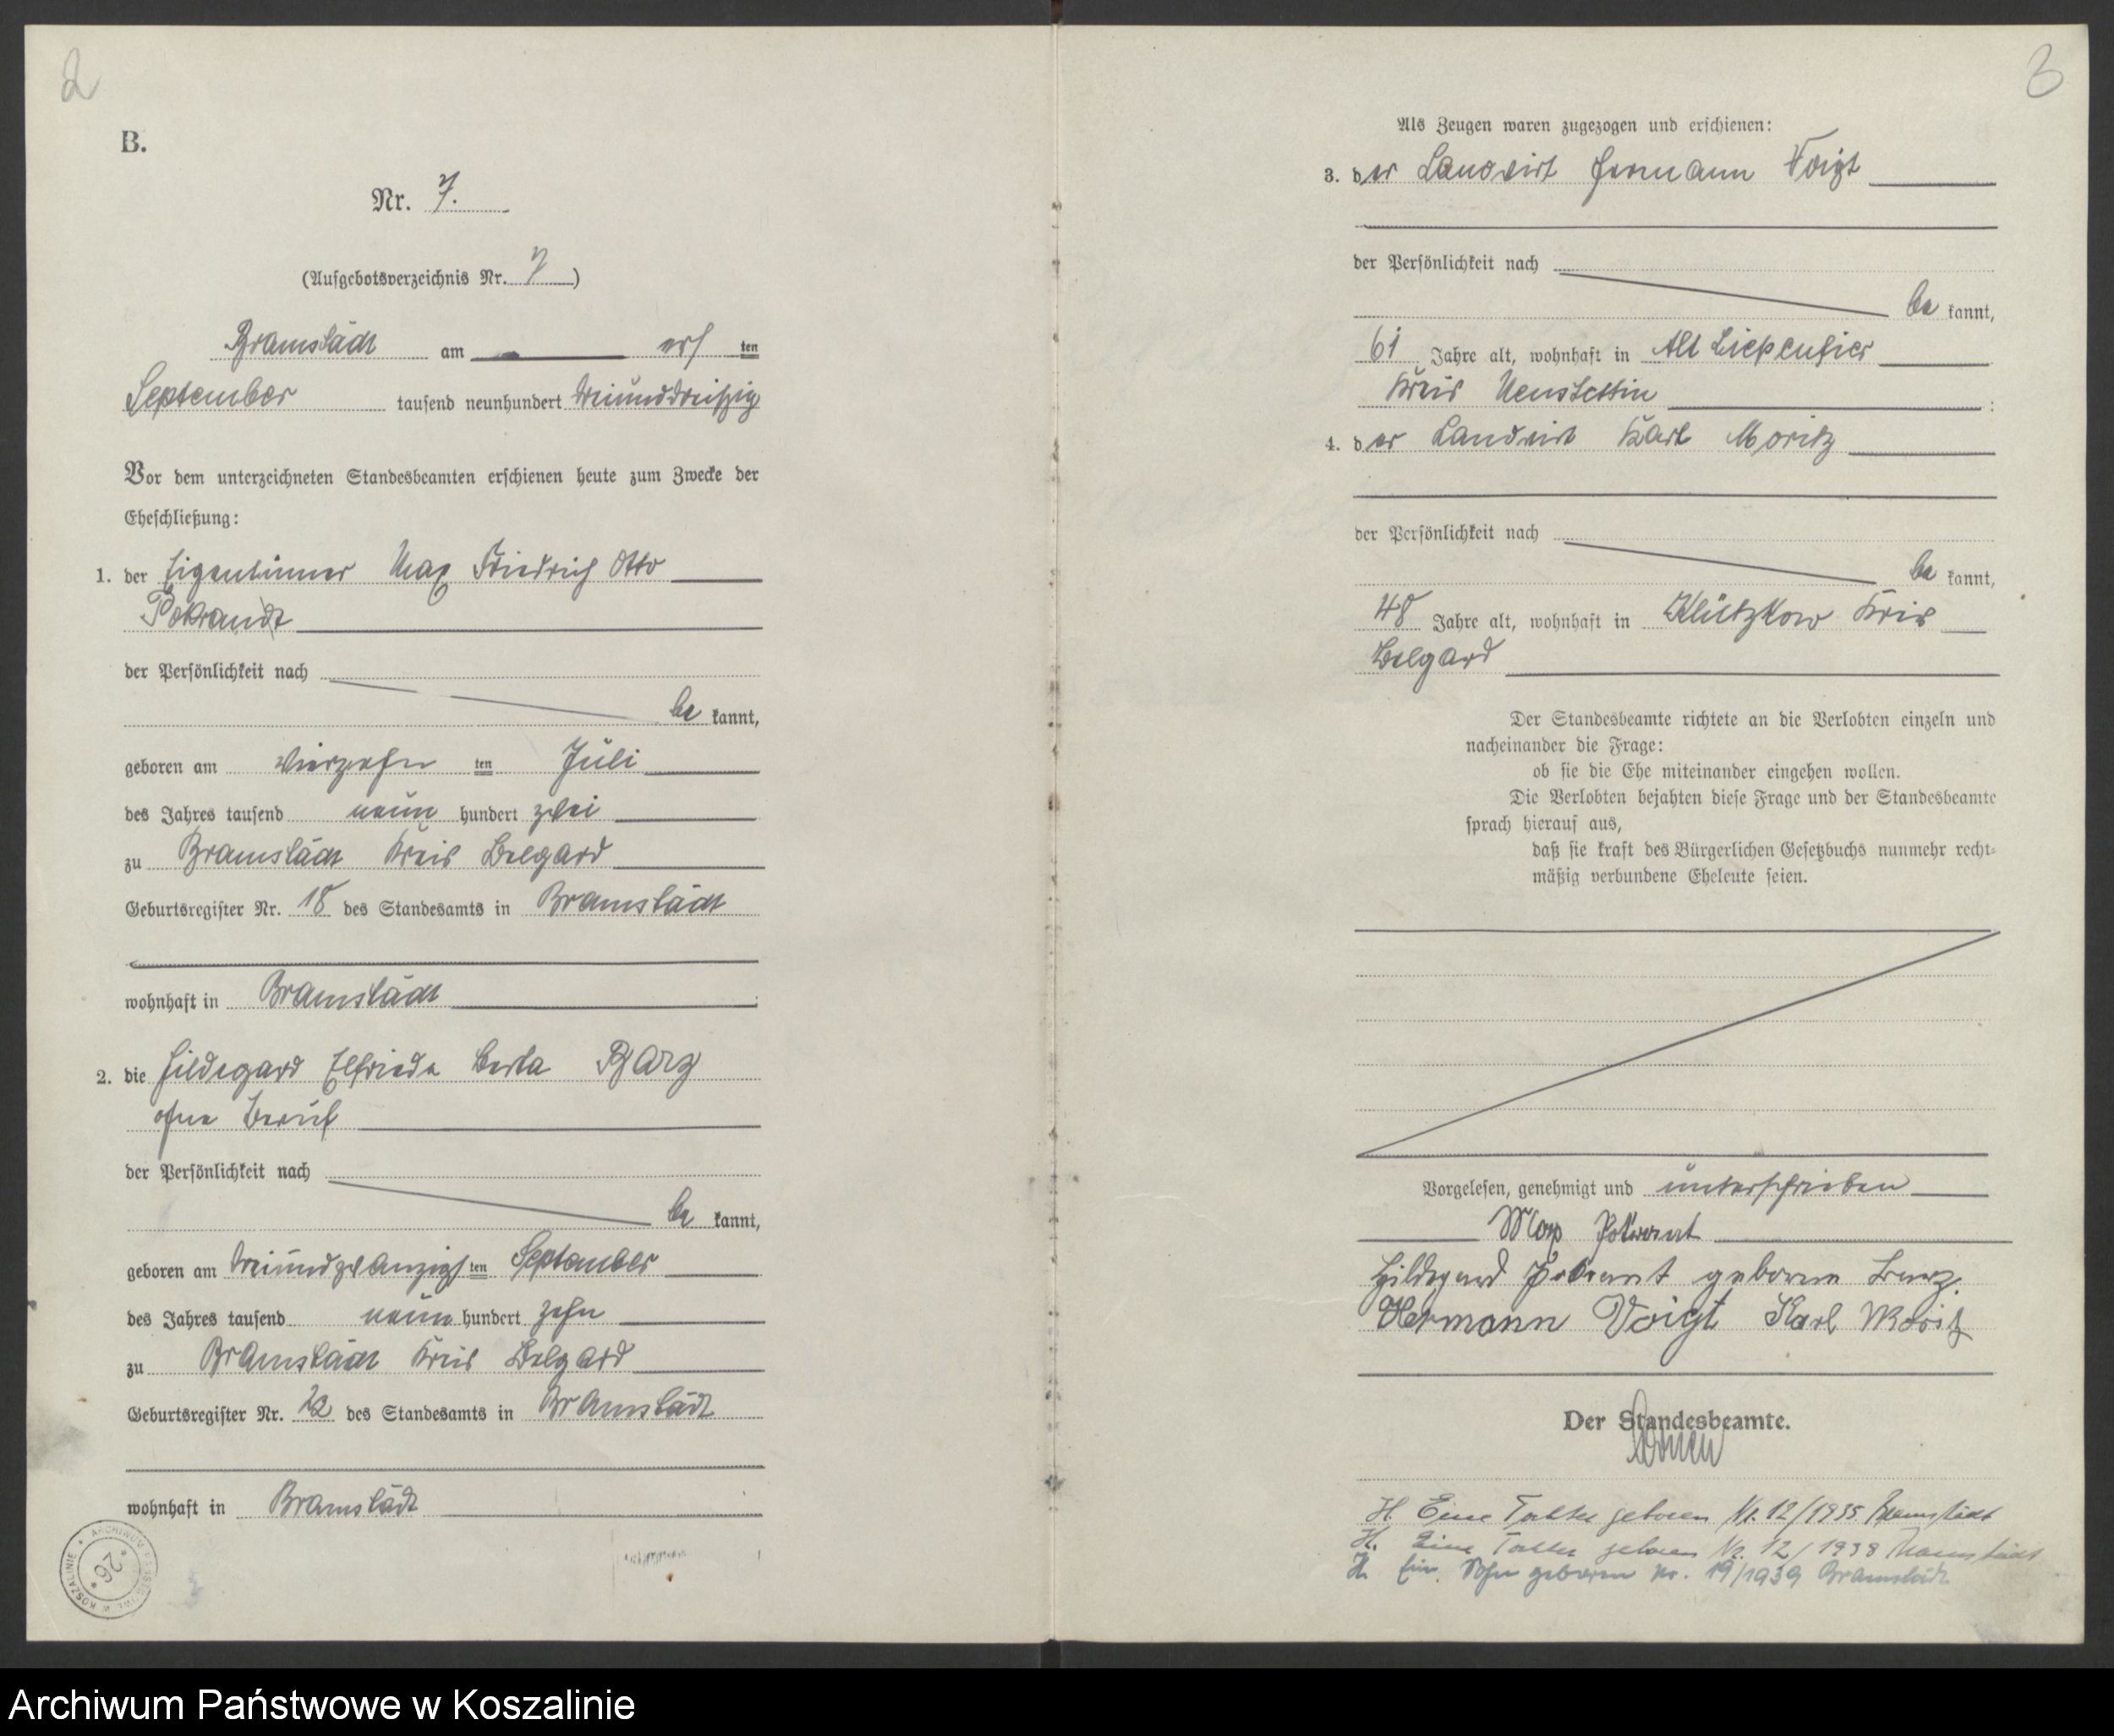 2
B.
Nr. 7.
(Aufgebotsverzeichnis Nr. 7)
Bramstädt am ersten
September tausend neunhundert dreiunddreißig
Vor dem unterzeichneten Standesbeamten erschienen heute zum Zwecke der
Eheschließung:
1. der Eigentümer Max Friedrich Otto
Pokrandt
der Persönlichkeit nach
be kannt,
geboren am vierzehn ten Juli
des Jahres tausend neun hundert zwei
zu Bramstädt Kreis Belgard
Geburtsregister Nr. 18 des Standesamts in Bramstädt
wohnhaft in Bramstädt
2. die Hildegard Elfriede Berta Barz
ohne Beruf
der Persönlichkeit nach
be kannt,
geboren am dreiundzwanzigsten September
des Jahres tausend neun hundert zehn
zu Bramstädt Kreis Belgard
Geburtsregister Nr. des Standesamts in Bramstädt
wohnhaft in Bramstädt
ARCHIWUM PAŃSTWOWE W KOSZALINIE
* 26 *
3
Als Zeugen waren zugezogen und erschienen:
3. der Landwirt Hermann Voigt
der Persönlichkeit nach
be kannt,
61 Jahre alt, wohnhaft in Alt Liepenfier
Kreis Neustettin
4. der Landwirt Karl Moritz
der Persönlichkeit nach
be kannt,
48 Jahre alt, wohnhaft in Klützkow Kreis
Belgard
Der Standesbeamte richtete an die Verlobten einzeln und
nacheinander die Frage:
ob sie die Ehe miteinander eingehen wollen.
Die Verlobten bejahten diese Frage und der Standesbeamte
sprach hierauf aus,
daß sie kraft des Bürgerlichen Gesetzbuchs nunmehr recht-
mäßig verbundene Eheleute seien.
Vorgelesen, genehmigt und unterschrieben
Max Pokrant
Hildegard Pokrant geborene Barz.
Hermann Voigt Karl Moritz
Der Standesbeamte.
H. Eine Tochter geboren Nr. 12/1935 Bramstädt
H. Eine Tochter geboren Nr. 12/1938 Bramstädt
H. Ein Sohn geboren Nr. 19/1939 Bramstädt
Archiwum Państwowe w Koszalinie